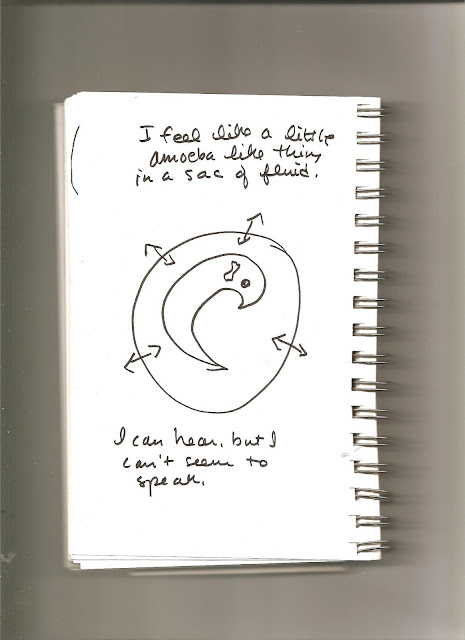 I feel like a little
amoeba like thing
in a sac of fluid.
I can hear, but I
can't seem to
speak.